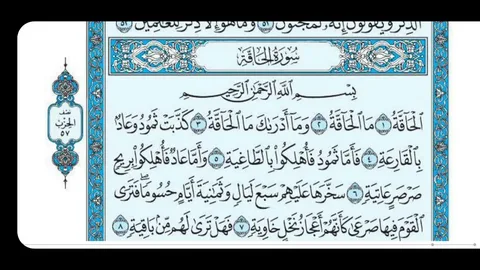 الذِّكْرَ وَيَقُولُونَ إِنَّهُۥ لَمَجْنُونٌ ٥١ وَمَا هُوَ إِلَّا ذِكْرٌ لِّلْعَٰلَمِينَ ٥٢
سُورَةُ الْحَاقَّةِ
بِسْمِ اللَّهِ الرَّحْمَٰنِ الرَّحِيمِ
الْحَاقَّةُ ١ مَا الْحَاقَّةُ ٢ وَمَا أَدْرَىٰكَ مَا الْحَاقَّةُ ٣ كَذَّبَتْ ثَمُودُ وَعَادٌۢ
بِالْقَارِعَةِ ٤ فَأَمَّا ثَمُودُ فَأُهْلِكُوا۟ بِالطَّاغِيَةِ ٥ وَأَمَّا عَادٌ فَأُهْلِكُوا۟ بِرِيحٍ
صَرْصَرٍ عَاتِيَةٍ ٦ سَخَّرَهَا عَلَيْهِمْ سَبْعَ لَيَالٍ وَثَمَٰنِيَةَ أَيَّامٍ حُسُومًا ۖ فَتَرَى
الْقَوْمَ فِيهَا صَرْعَىٰ كَأَنَّهُمْ أَعْجَازُ نَخْلٍ خَاوِيَةٍ ٧ فَهَلْ تَرَىٰ لَهُم مِّنۢ بَاقِيَةٍ ٨
نصف
الحزب
٥٧